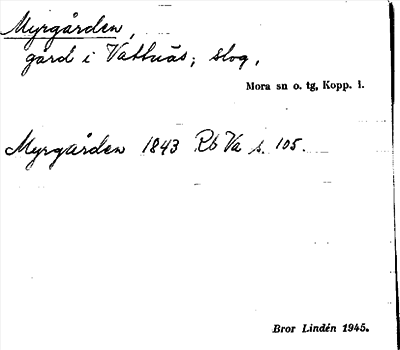 Myrgården,
gård i Vattnäs; slog.
Mora sn o. tg, Kopp. l.
Myrgården 1843 Rb Va s. 105.
Bror Lindén 1945.